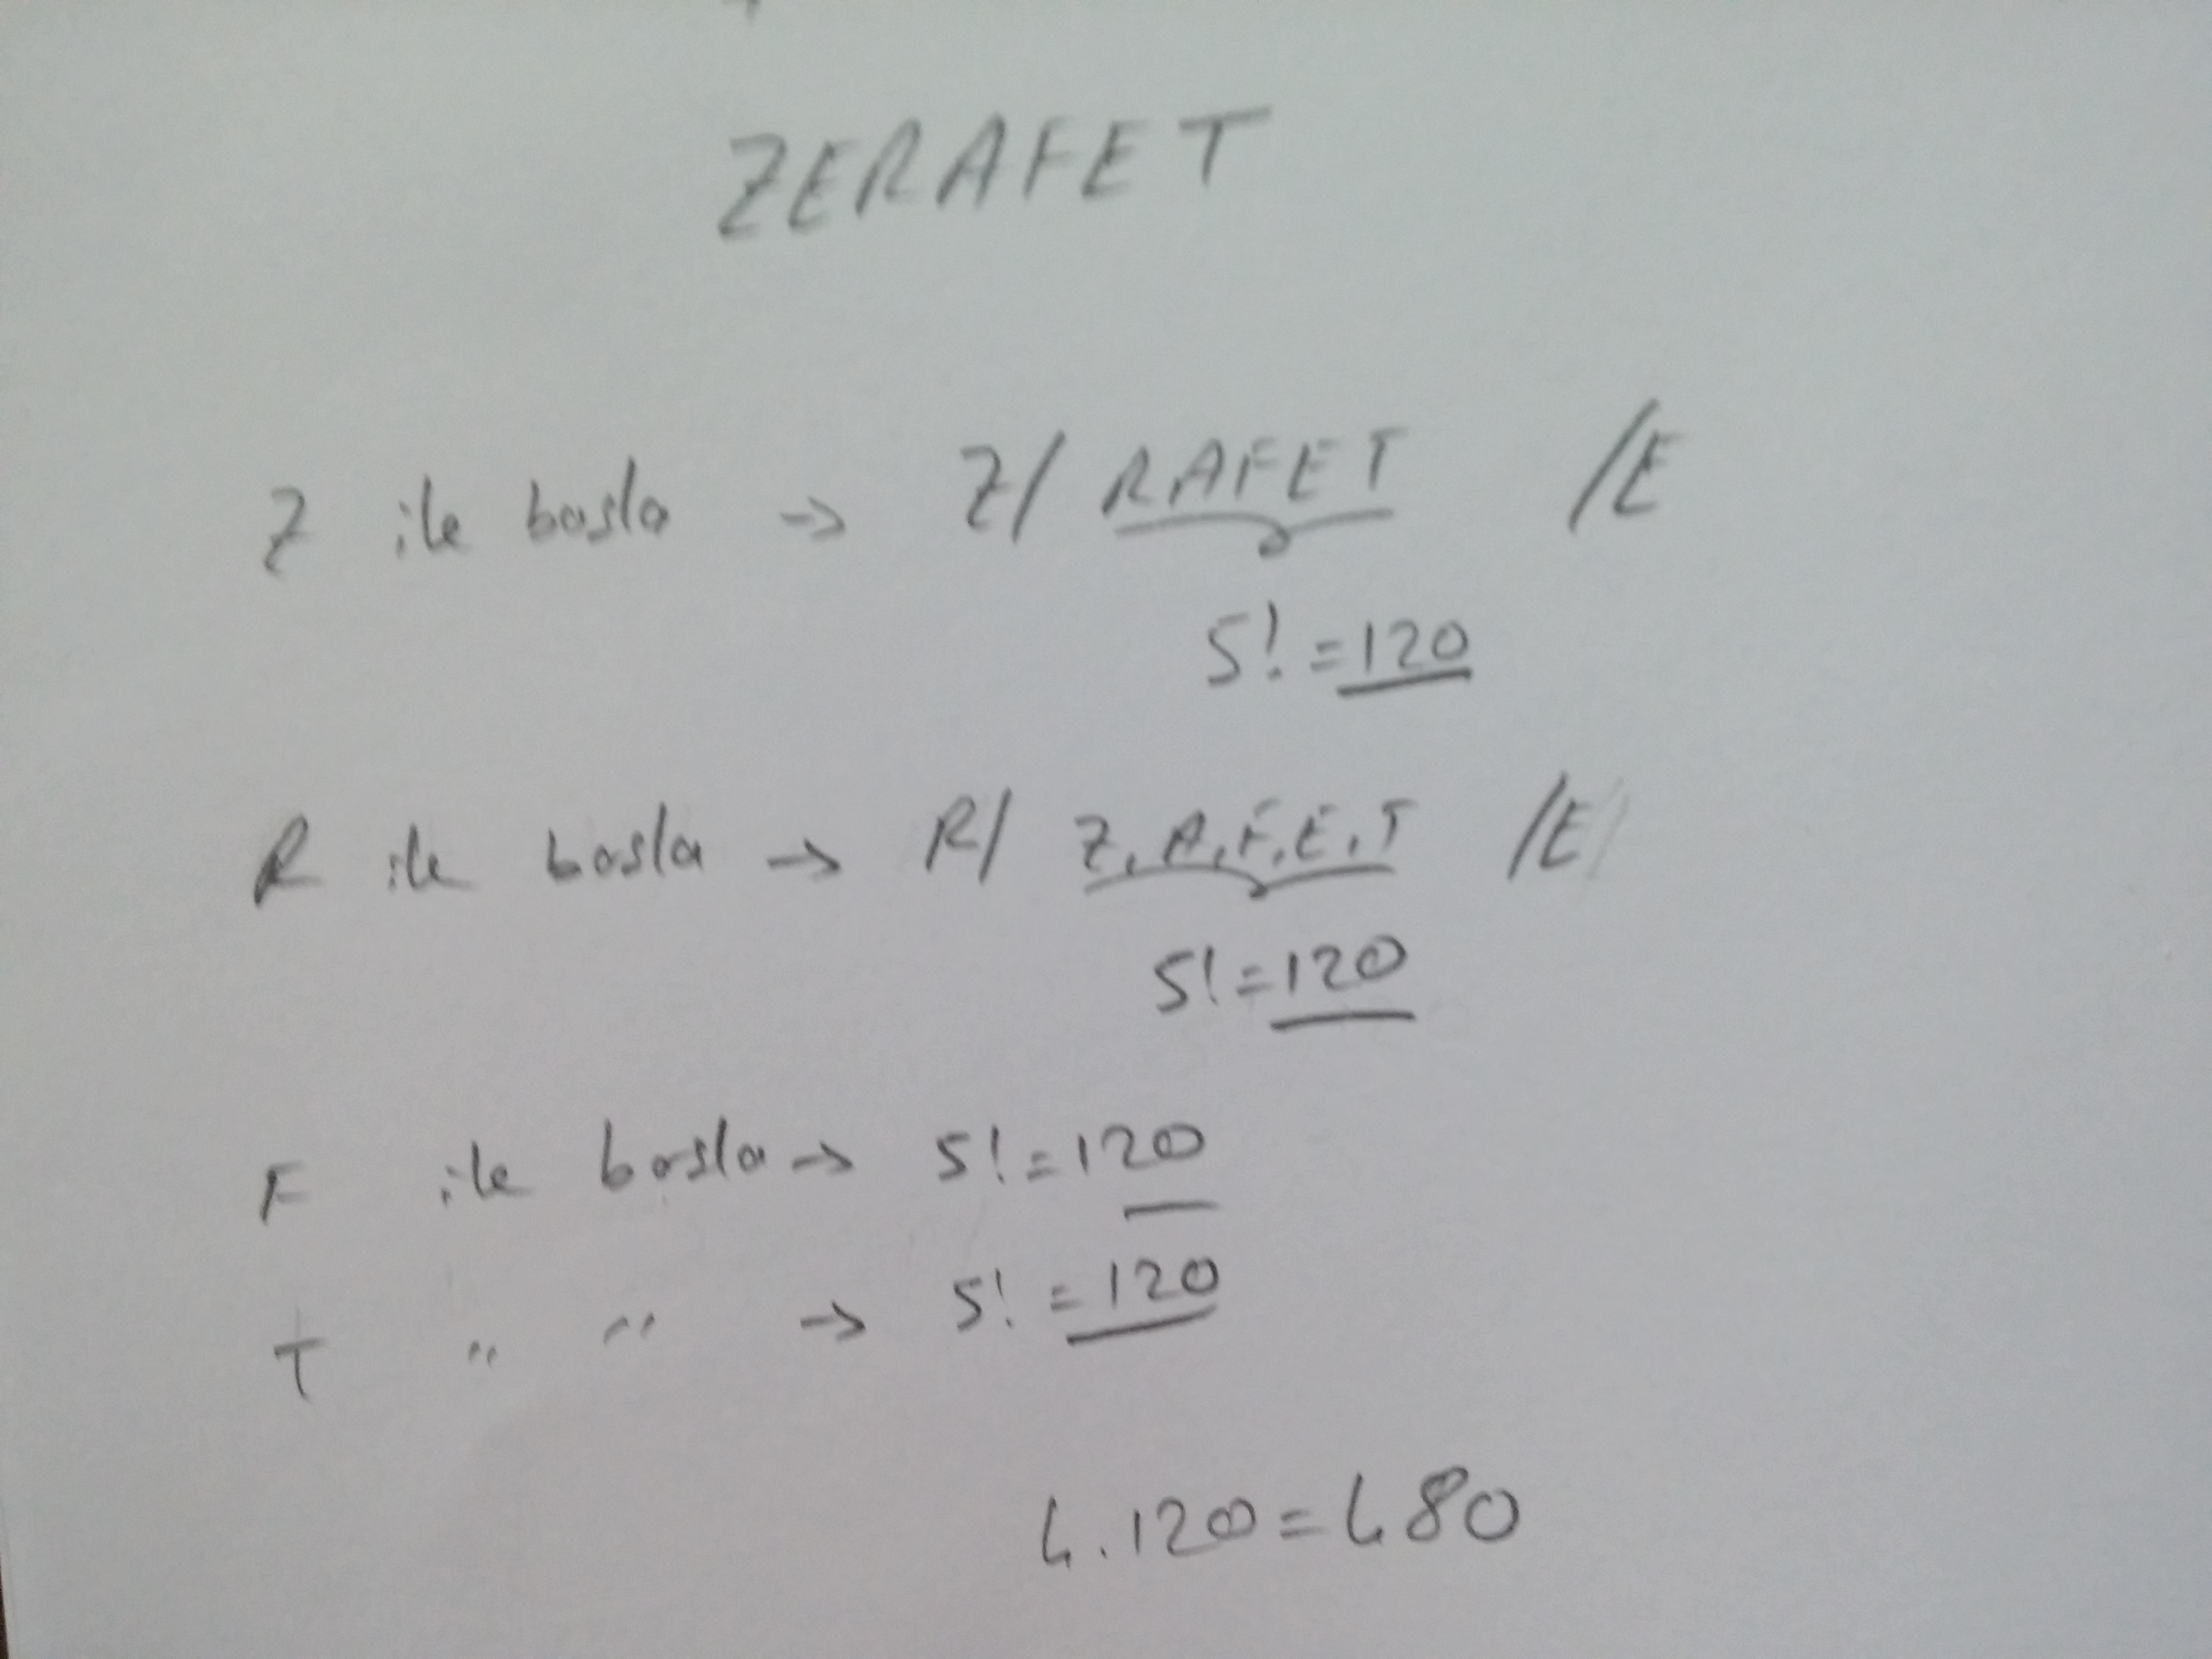 ZERAFET
Z ile basla → Z/ RAFET /E
5! = 120
R ile basla → R/ Z, A, F, E, T /E
5! = 120
F ile basla → 5! = 120
T " " → 5! = 120
4.120 = 480